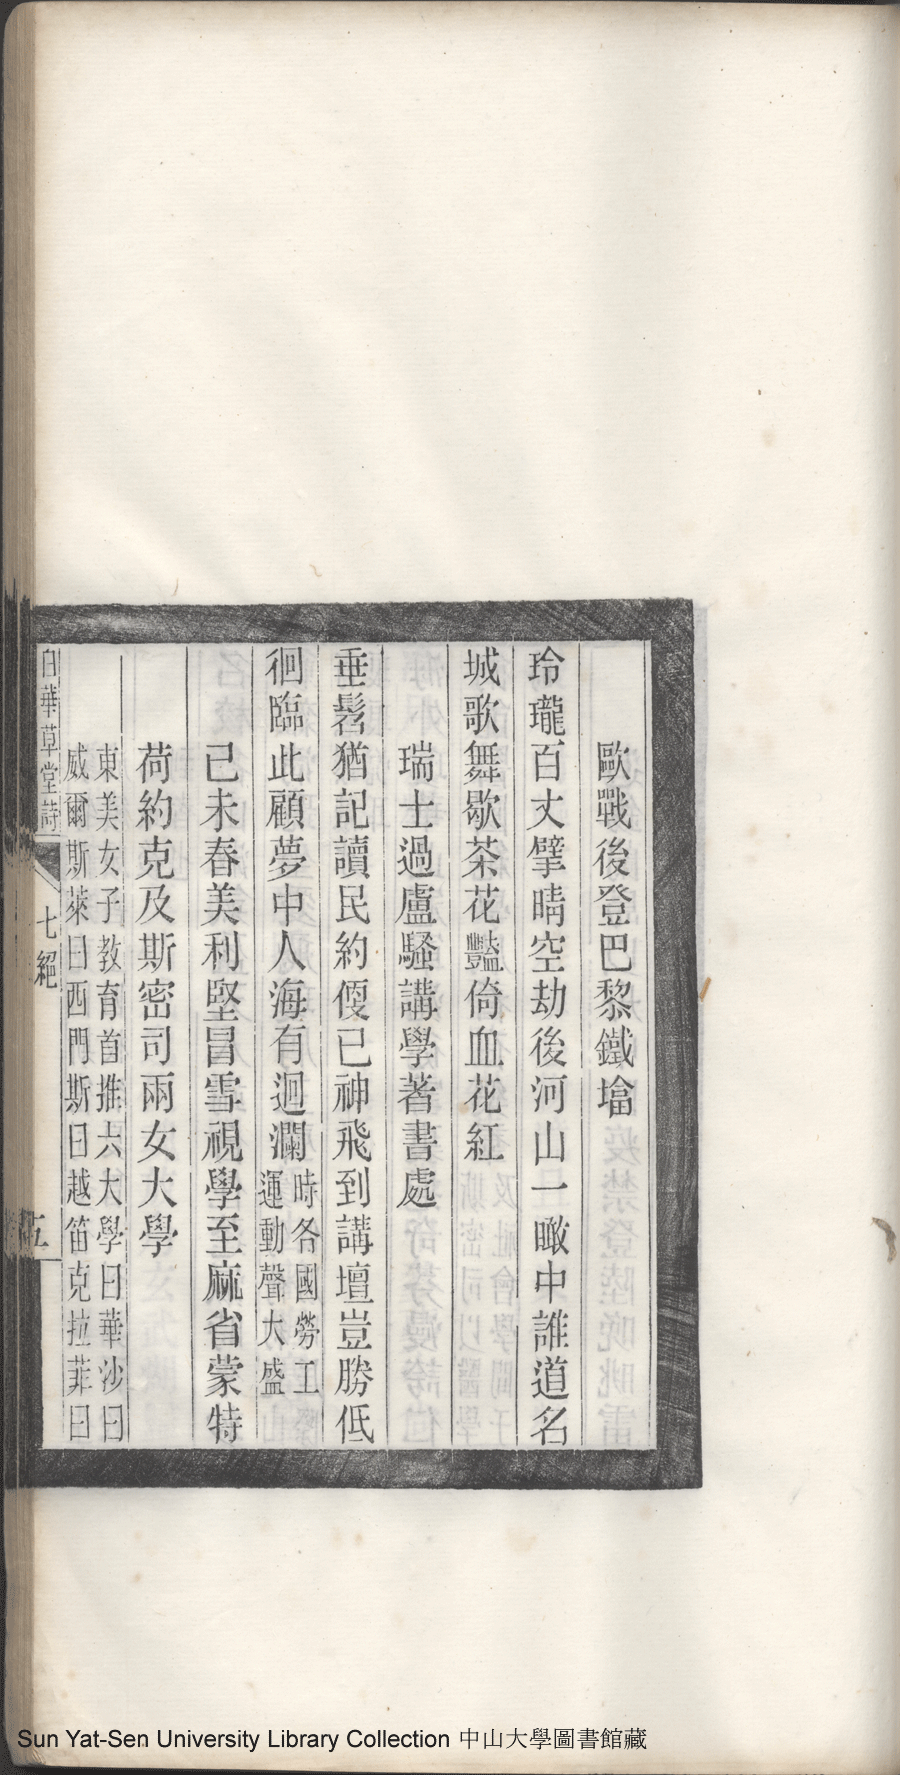 歐戰後登巴黎鐵墖
玲瓏百丈擘晴空劫後河山一瞰中誰道名
城歌舞歇茶花豔倚血花紅
瑞士過盧騷講學著書處
垂髫猶記讀民約僾已神飛到講壇豈勝低
徊臨此顧夢中人海有迴瀾
時各國勞工
運動聲大盛
己未春美利堅冒雪視學至麻省蒙特
荷約克及斯密司兩女大學
東美女子教育首推六大學曰華沙曰
威爾斯萊曰西門斯曰越笛克拉菲曰
白華草堂詩
七絕
五
Sun Yat-Sen University Library Collection 中山大學圖書館藏